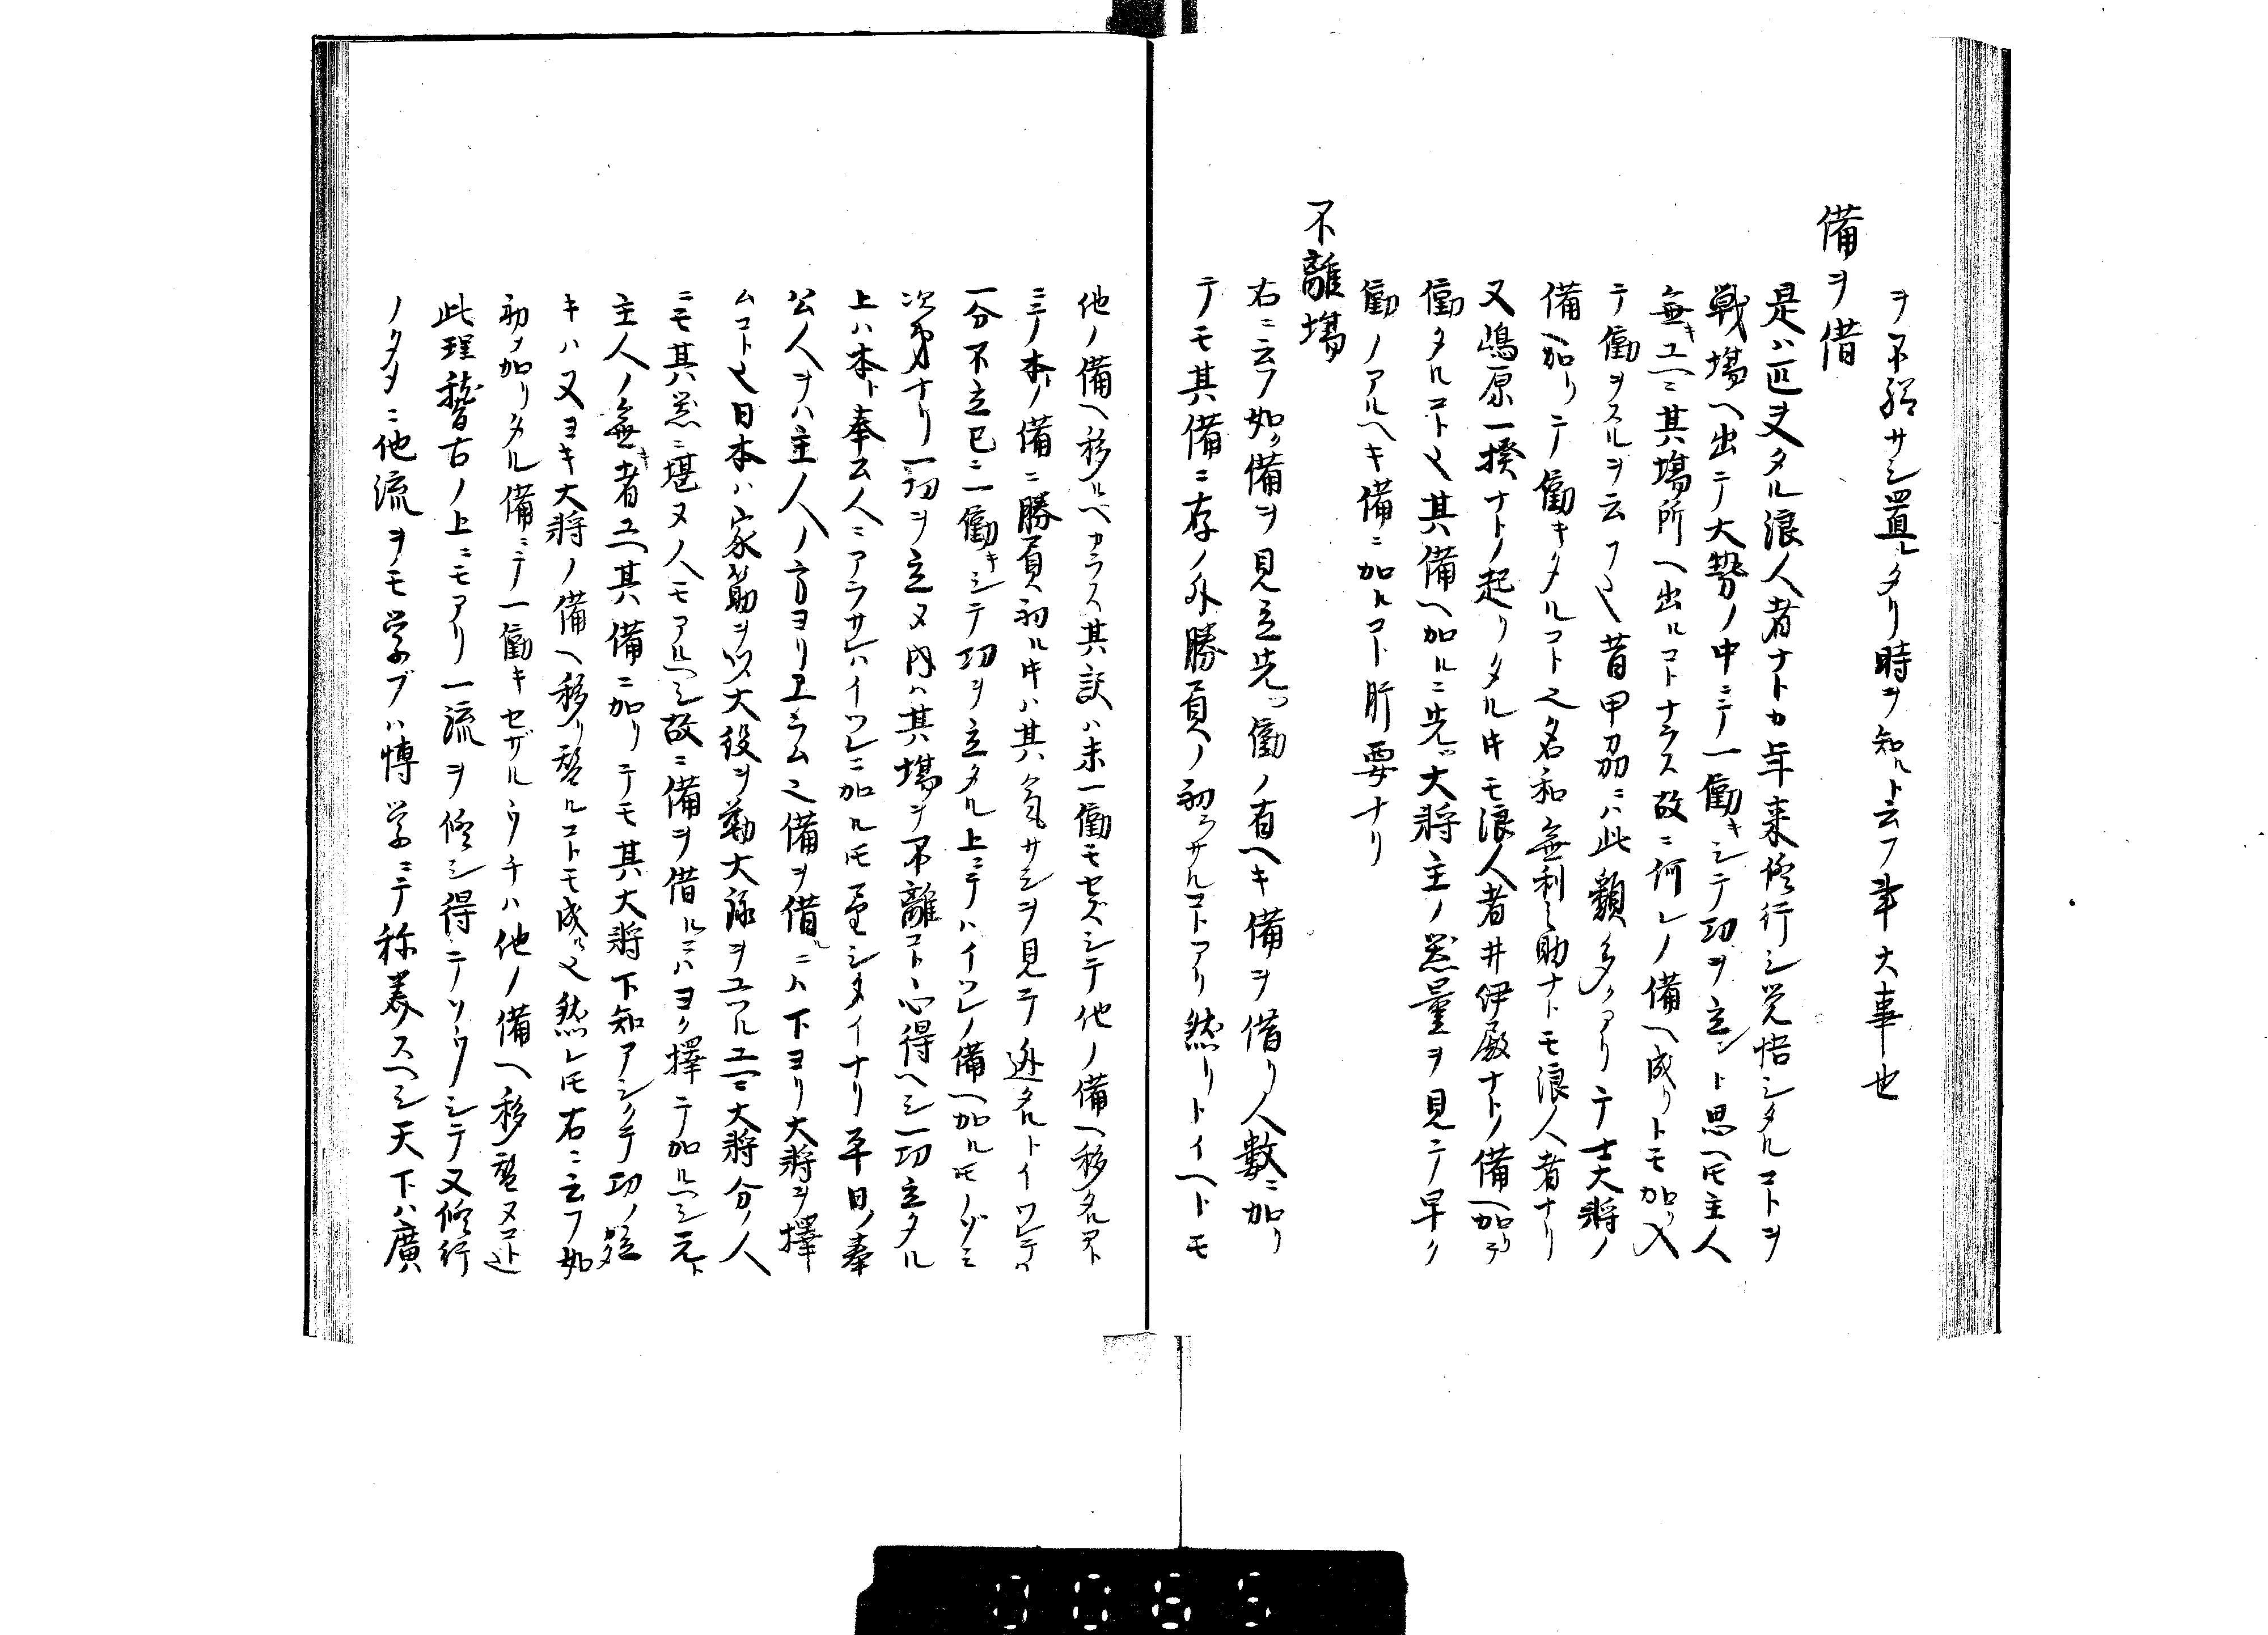 ヲ不弛サシ置ルタリ時ヲ知ルト云フ事大事也
備ヲ借
是ハ匹夫タル浪人者ナトカ年来修行シ覚悟シタルコトヲ
戦場ヘ出テ大勢ノ中ニテ一働キシテ功ヲ立ント思ヘ𪜈主人
無キユヘニ其場所ヘ出ルコトナラス故ニ何レノ備ヘ成リトモ加リ入
テ働ヲスルヲ云フ也昔甲州ニハ此類多クアリテ士大将ノ
備ヘ加リテ働キタルコト也名和無利之助ナトモ浪人者ナリ
又嶋原一揆ナトノ起リタル𪜈モ浪人者井伊殿ナトノ備ヘ加リテ
働タルコト也其備ヘ加ルニ先ツ大将主ノ器量ヲ見テ早ク
働ノアルヘキ備ニ加ルコト肝要ナリ
不離場
右ニ云フ如ク備ヲ見立先ツ働ノ有ヘキ備ヲ借リ人数ニ加リ
テモ其備ニ存ノ外勝負ノ初ラサルコトアリ然リトイヘトモ
他ノ備ヘ移ルヘカラス其訳ハ未一働モセズシテ他ノ備ヘ移タルアト
ニテ本トノ備ニ勝負初ル時ハ其気サシヲ見テ逃タルトイワレテハ
一分不立已ニ一働キシテ功ヲ立タル上ニテハイツレノ備ヘ加ル𪜈ノゾミ
次第ナリ一功ヲ立ヌ内ハ其場ヲ不離コト心得ヘシ一功立タル
上ハ本ト奉公人ニアラサレハイツレニ加ル𪜈皆シタイナリ平日ノ奉
公人ヲハ主人ノ方ヨリエラム也備ヲ借ルニハ下ヨリ大将ヲ擇
ムコト也日本ハ家筋ヲ以大役ヲ勤大禄ヲユツルユヘニ大将分ノ人
ニモ其器ニ堪ヌ人モアルヘシ故ニ備ヲ借ルニハヨク擇テ加ルヘシ元ト
主人ノ無キ者ユヘ其備ニ加リテモ其大将下知アシクテ功ノ立カタ
キハ又ヨキ大将ノ備ヘ移リ替ルコトモ成ル也然レ𪜈右ニ云フ如
初メ加リタル備ニテ一働キセザルウチハ他ノ備ヘ移リ替ヌコト也
此理稽古ノ上ニモアリ一流ヲ修シ得テソウシテ又修行
ノタメニ他流ヲモ学ブハ博学ニテ称美スヘシ天下ハ廣